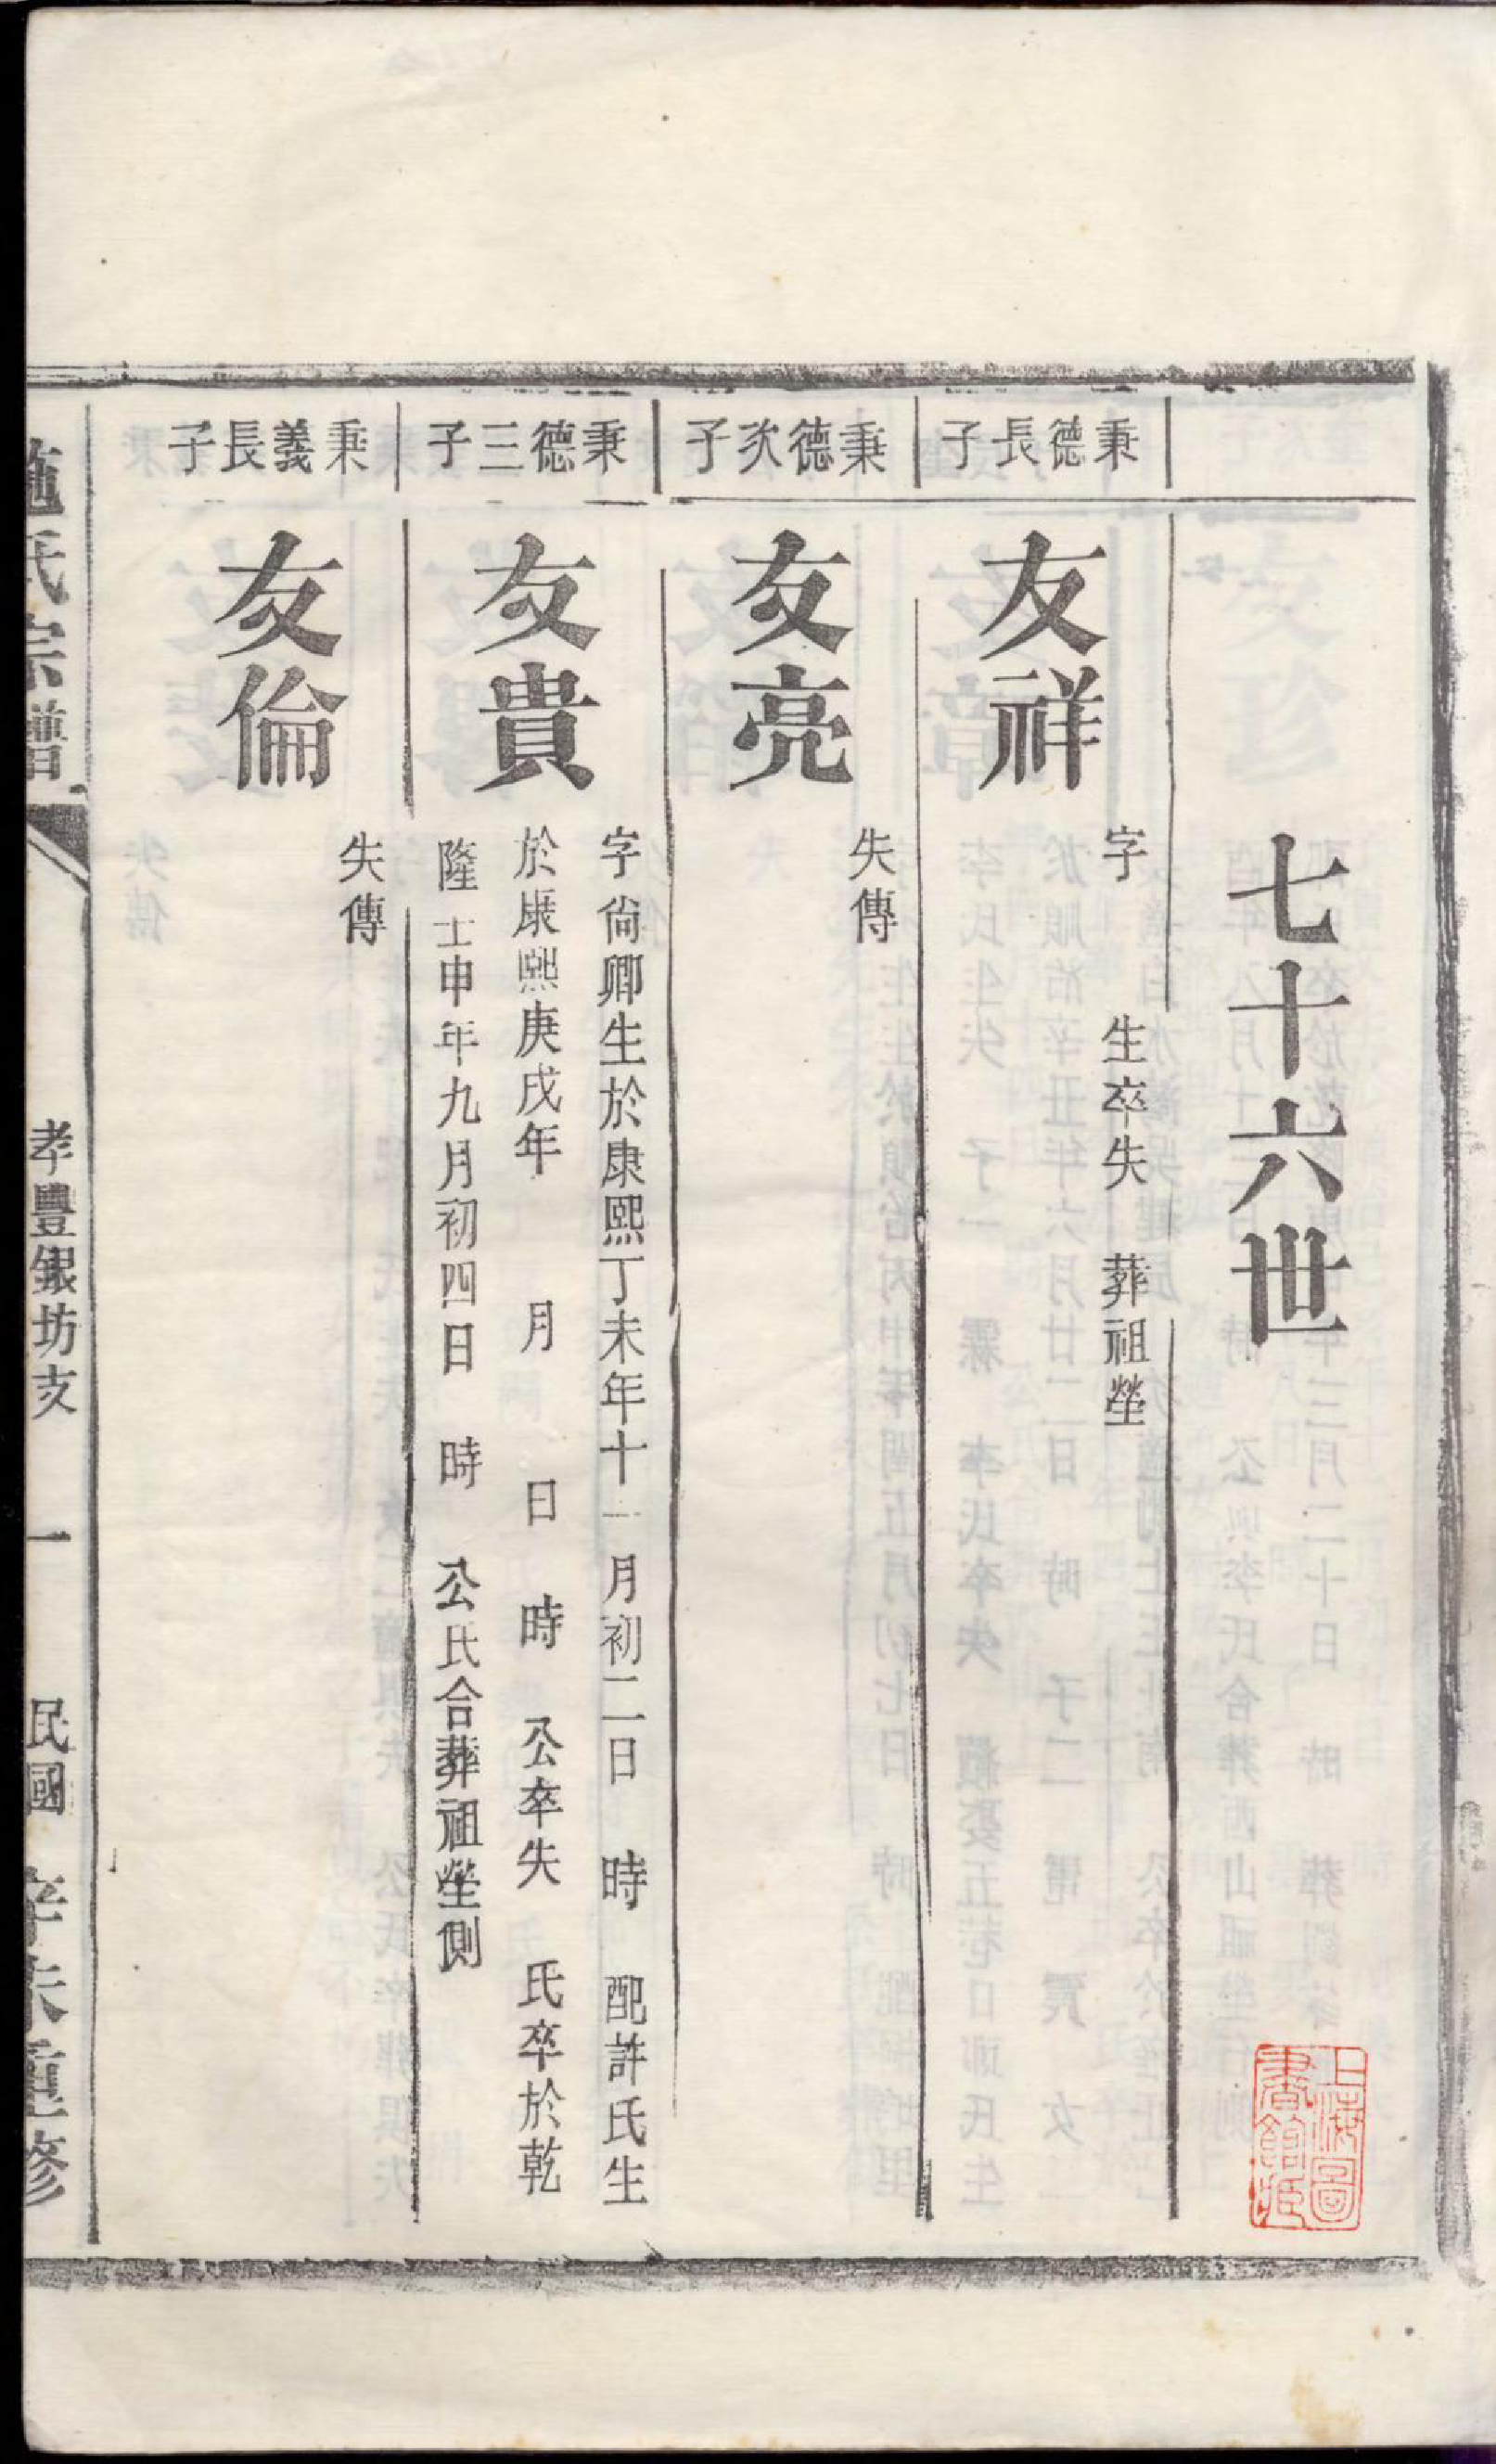 七十六世
秉德長子
友祥
字 生卒失 葬祖塋
秉德次子
友亮
失傳
秉德三子
友貴
字尙卿生於康熙丁未年十一月初二日 時 配許氏生
於康熙庚戌年 月 日 時 公卒失 氏卒於乾
隆壬申年九月初四日 時 公氏合葬祖塋側
秉義長子
友倫
失傳
施氏宗譜
孝豐銀坊支
一
民國 辛未重修
上海圖
書館藏